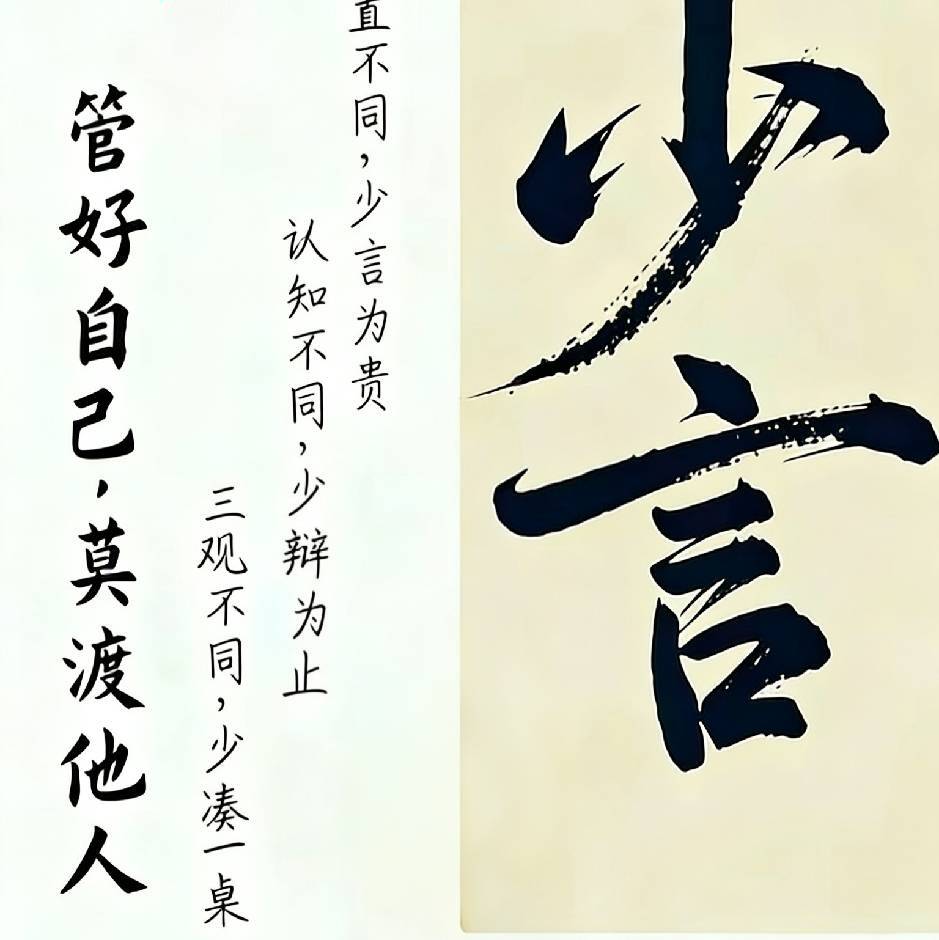 少言
直不同，少言为贵
认知不同，少辩为止
三观不同，少凑一桌
管好自己，莫渡他人